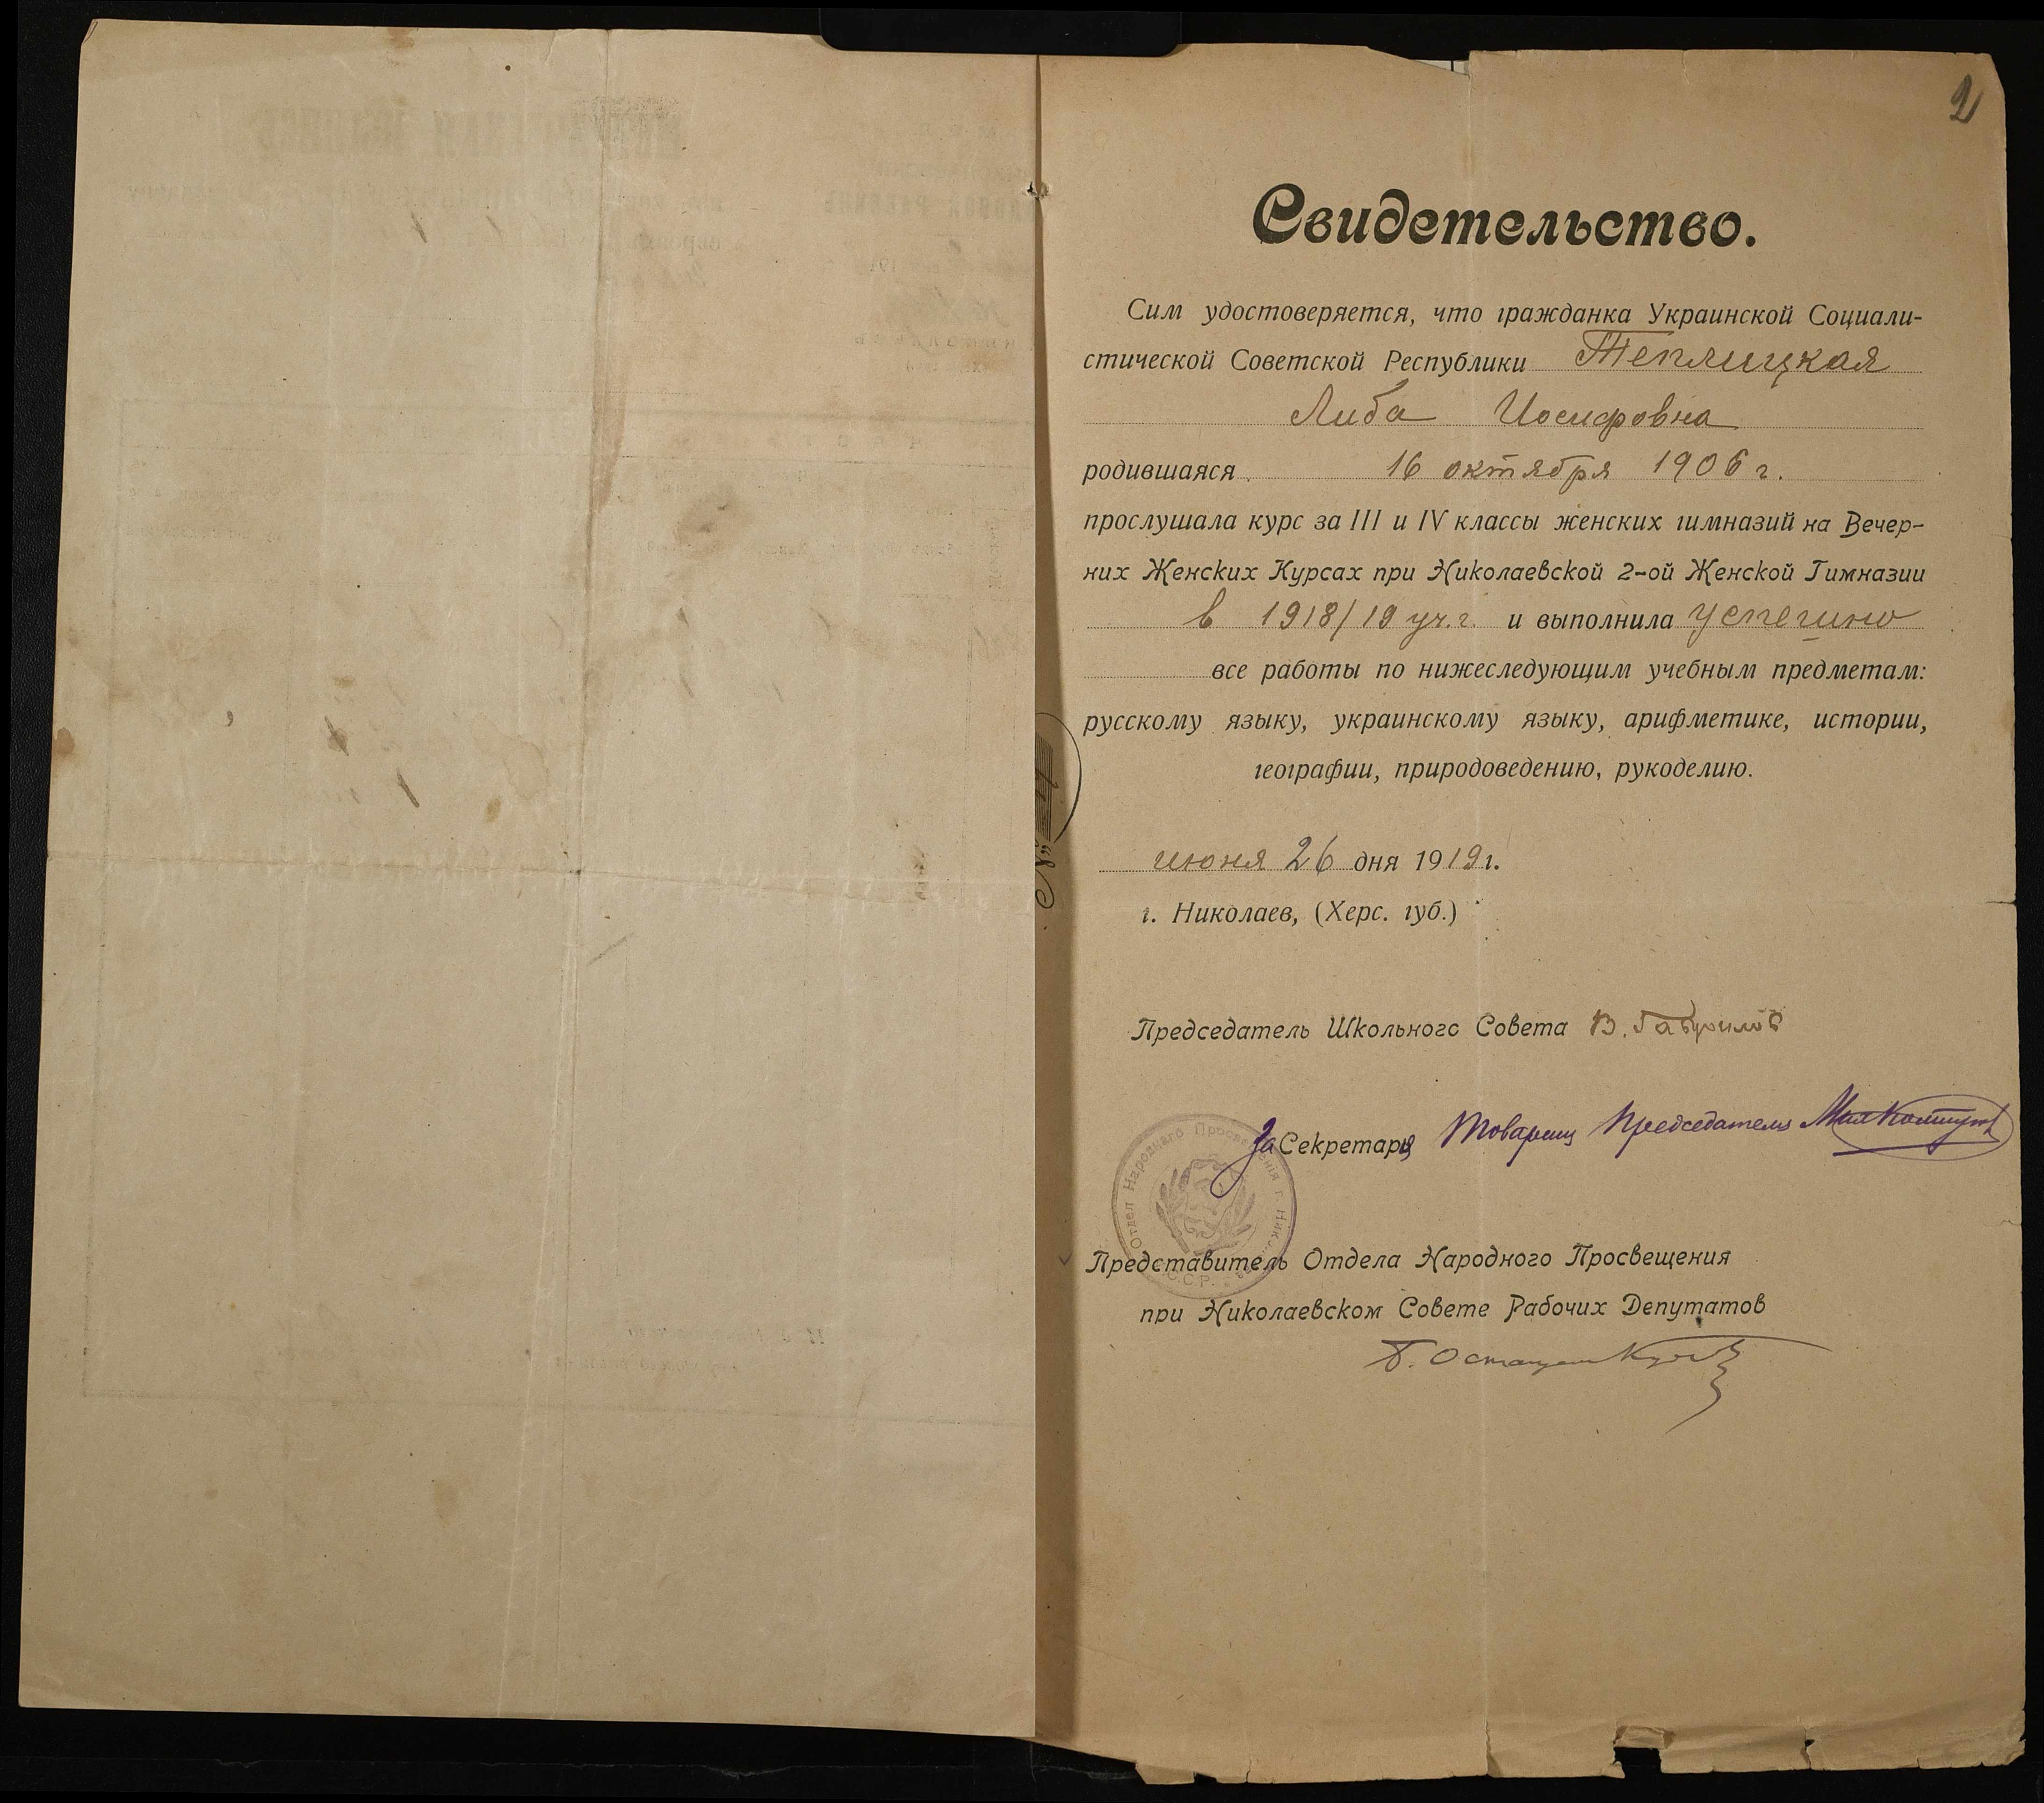 2
Свидетельство.
Сим удостоверяется, что гражданка Украинской Социали-
стической Советской Республики Теплицкая
Либа Иосифовна
родившаяся 16 октября 1906 г.
прослушала курс за III и IV классы женских гимназий на Вечер-
них Женских Курсах при Николаевской 2-ой Женской Гимназии
в 1918/19 уч. г. и выполнила успешно
все работы по нижеследующим учебным предметам:
русскому языку, украинскому языку, арифметике, истории,
географии, природоведению, рукоделию.
№ 
июня 26 дня 1919 г.
г. Николаев, (Херс. губ.)
Председатель Школьного Совета В. Гаврилов
За Секретаря Товарищ Председателя
Отдел Народнаго Просвещенія г. Ник
С.Р.
Представитель Отдела Народного Просвещения
при Николаевском Совете Рабочих Депутатов